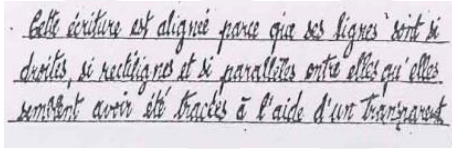 Cette écriture est alignée parce que ses lignes sont si
droites, si rectilignes et si parallèles entre elles qu'elles
semblent avoir été tracées à l'aide d'un transparent